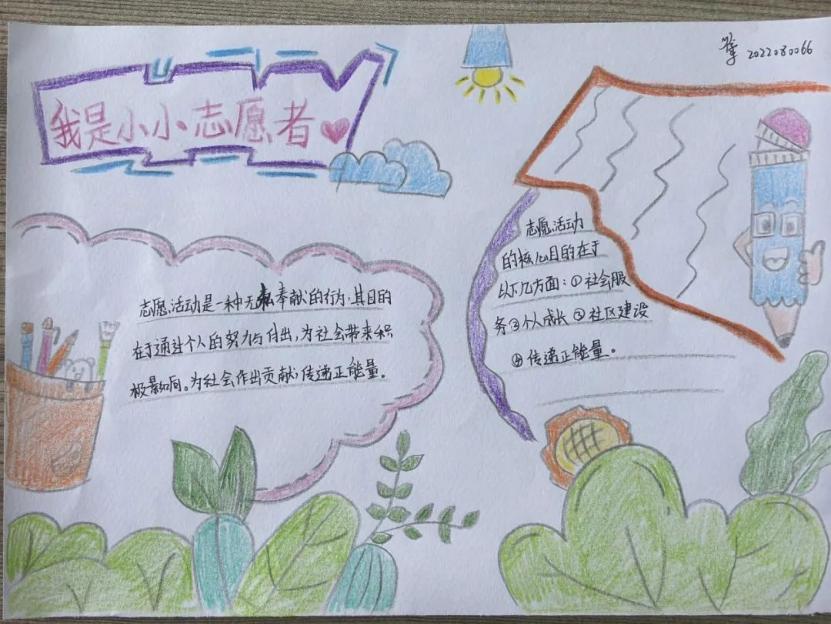 我是小小志愿者
2022080066
志愿活动是一种无私奉献的行为.其目的
在于通过个人的努力与付出,为社会带来积
极影响。为社会作出贡献,传递正能量。
志愿活动
的核心目的在于
以下几方面:①社会服
务②个人成长③社区建设
④传递正能量。